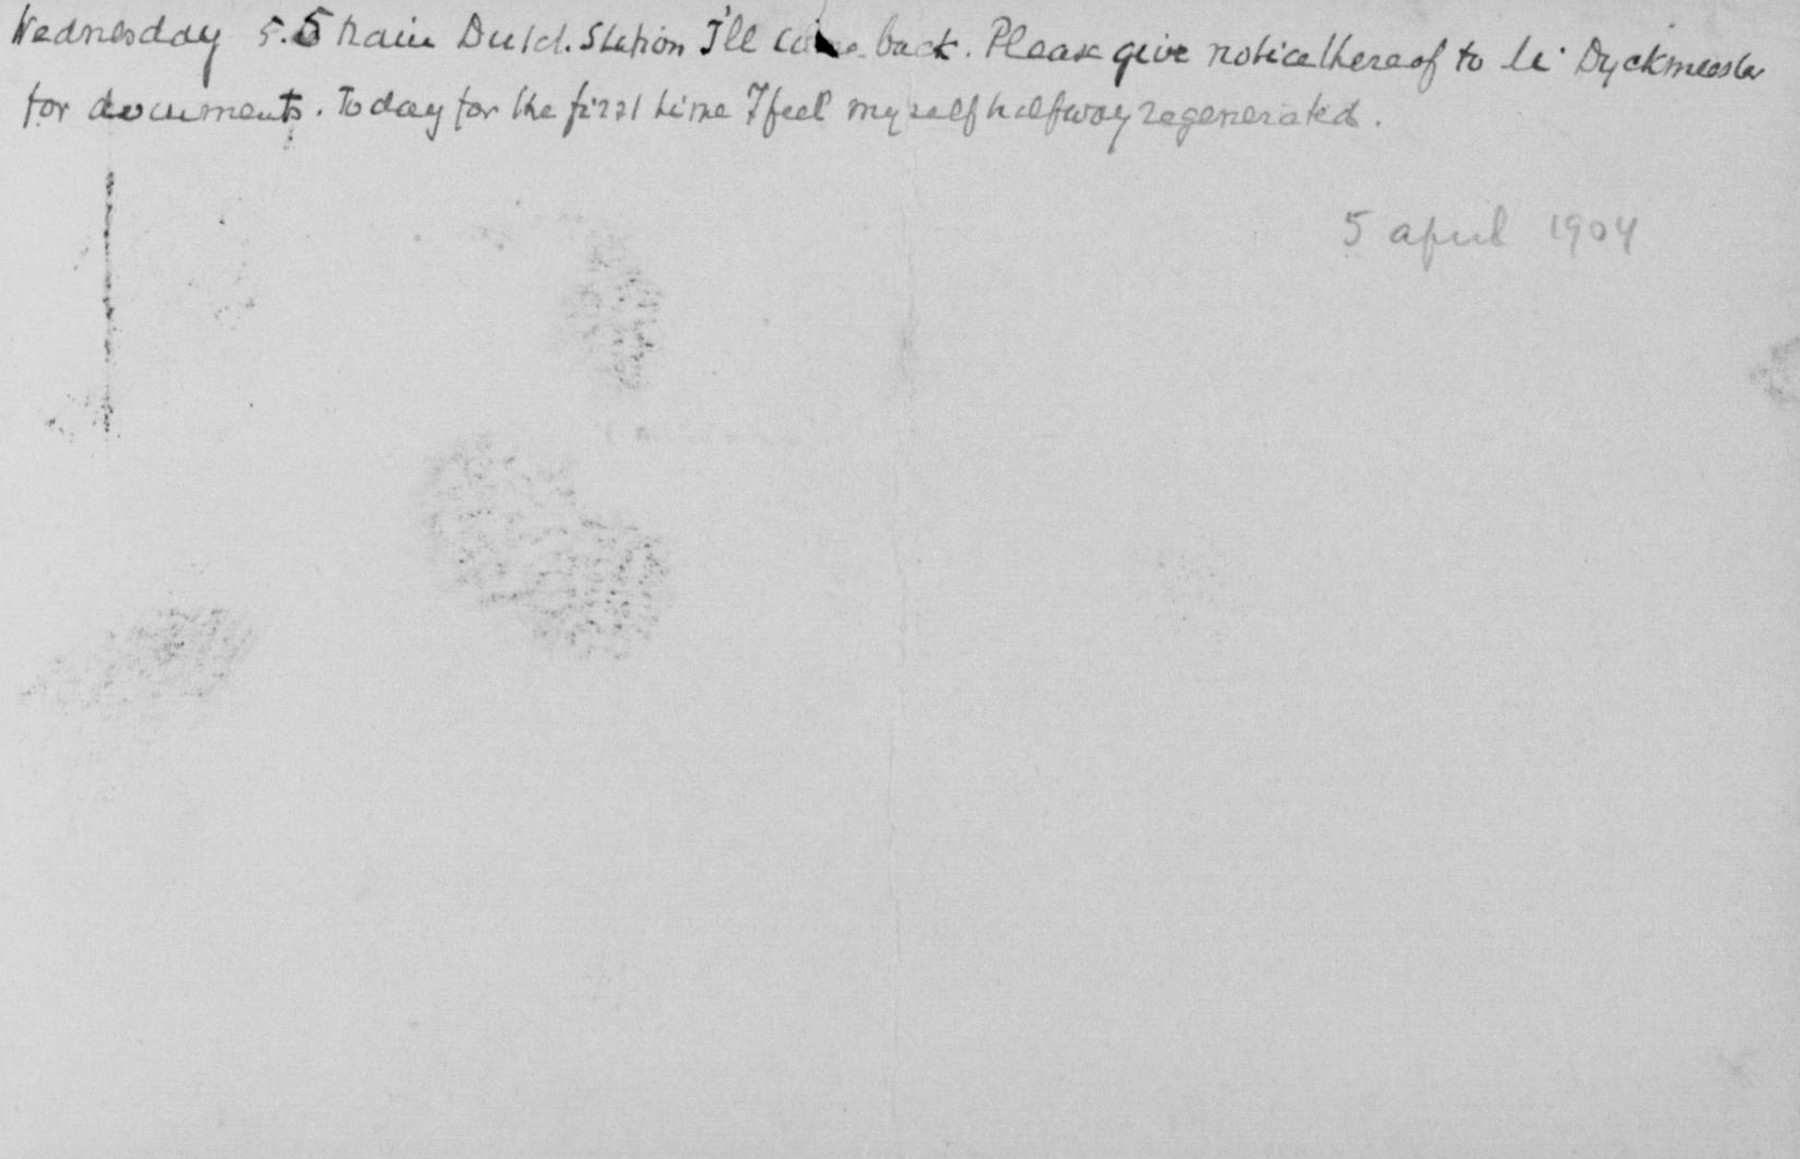 Wednesday 5.5 train Dutch. Station I'll come back. Please give notice thereof to Dyckmeester
for documents. To day for the first time I feel my self halfway regenerated.
5 april 1904